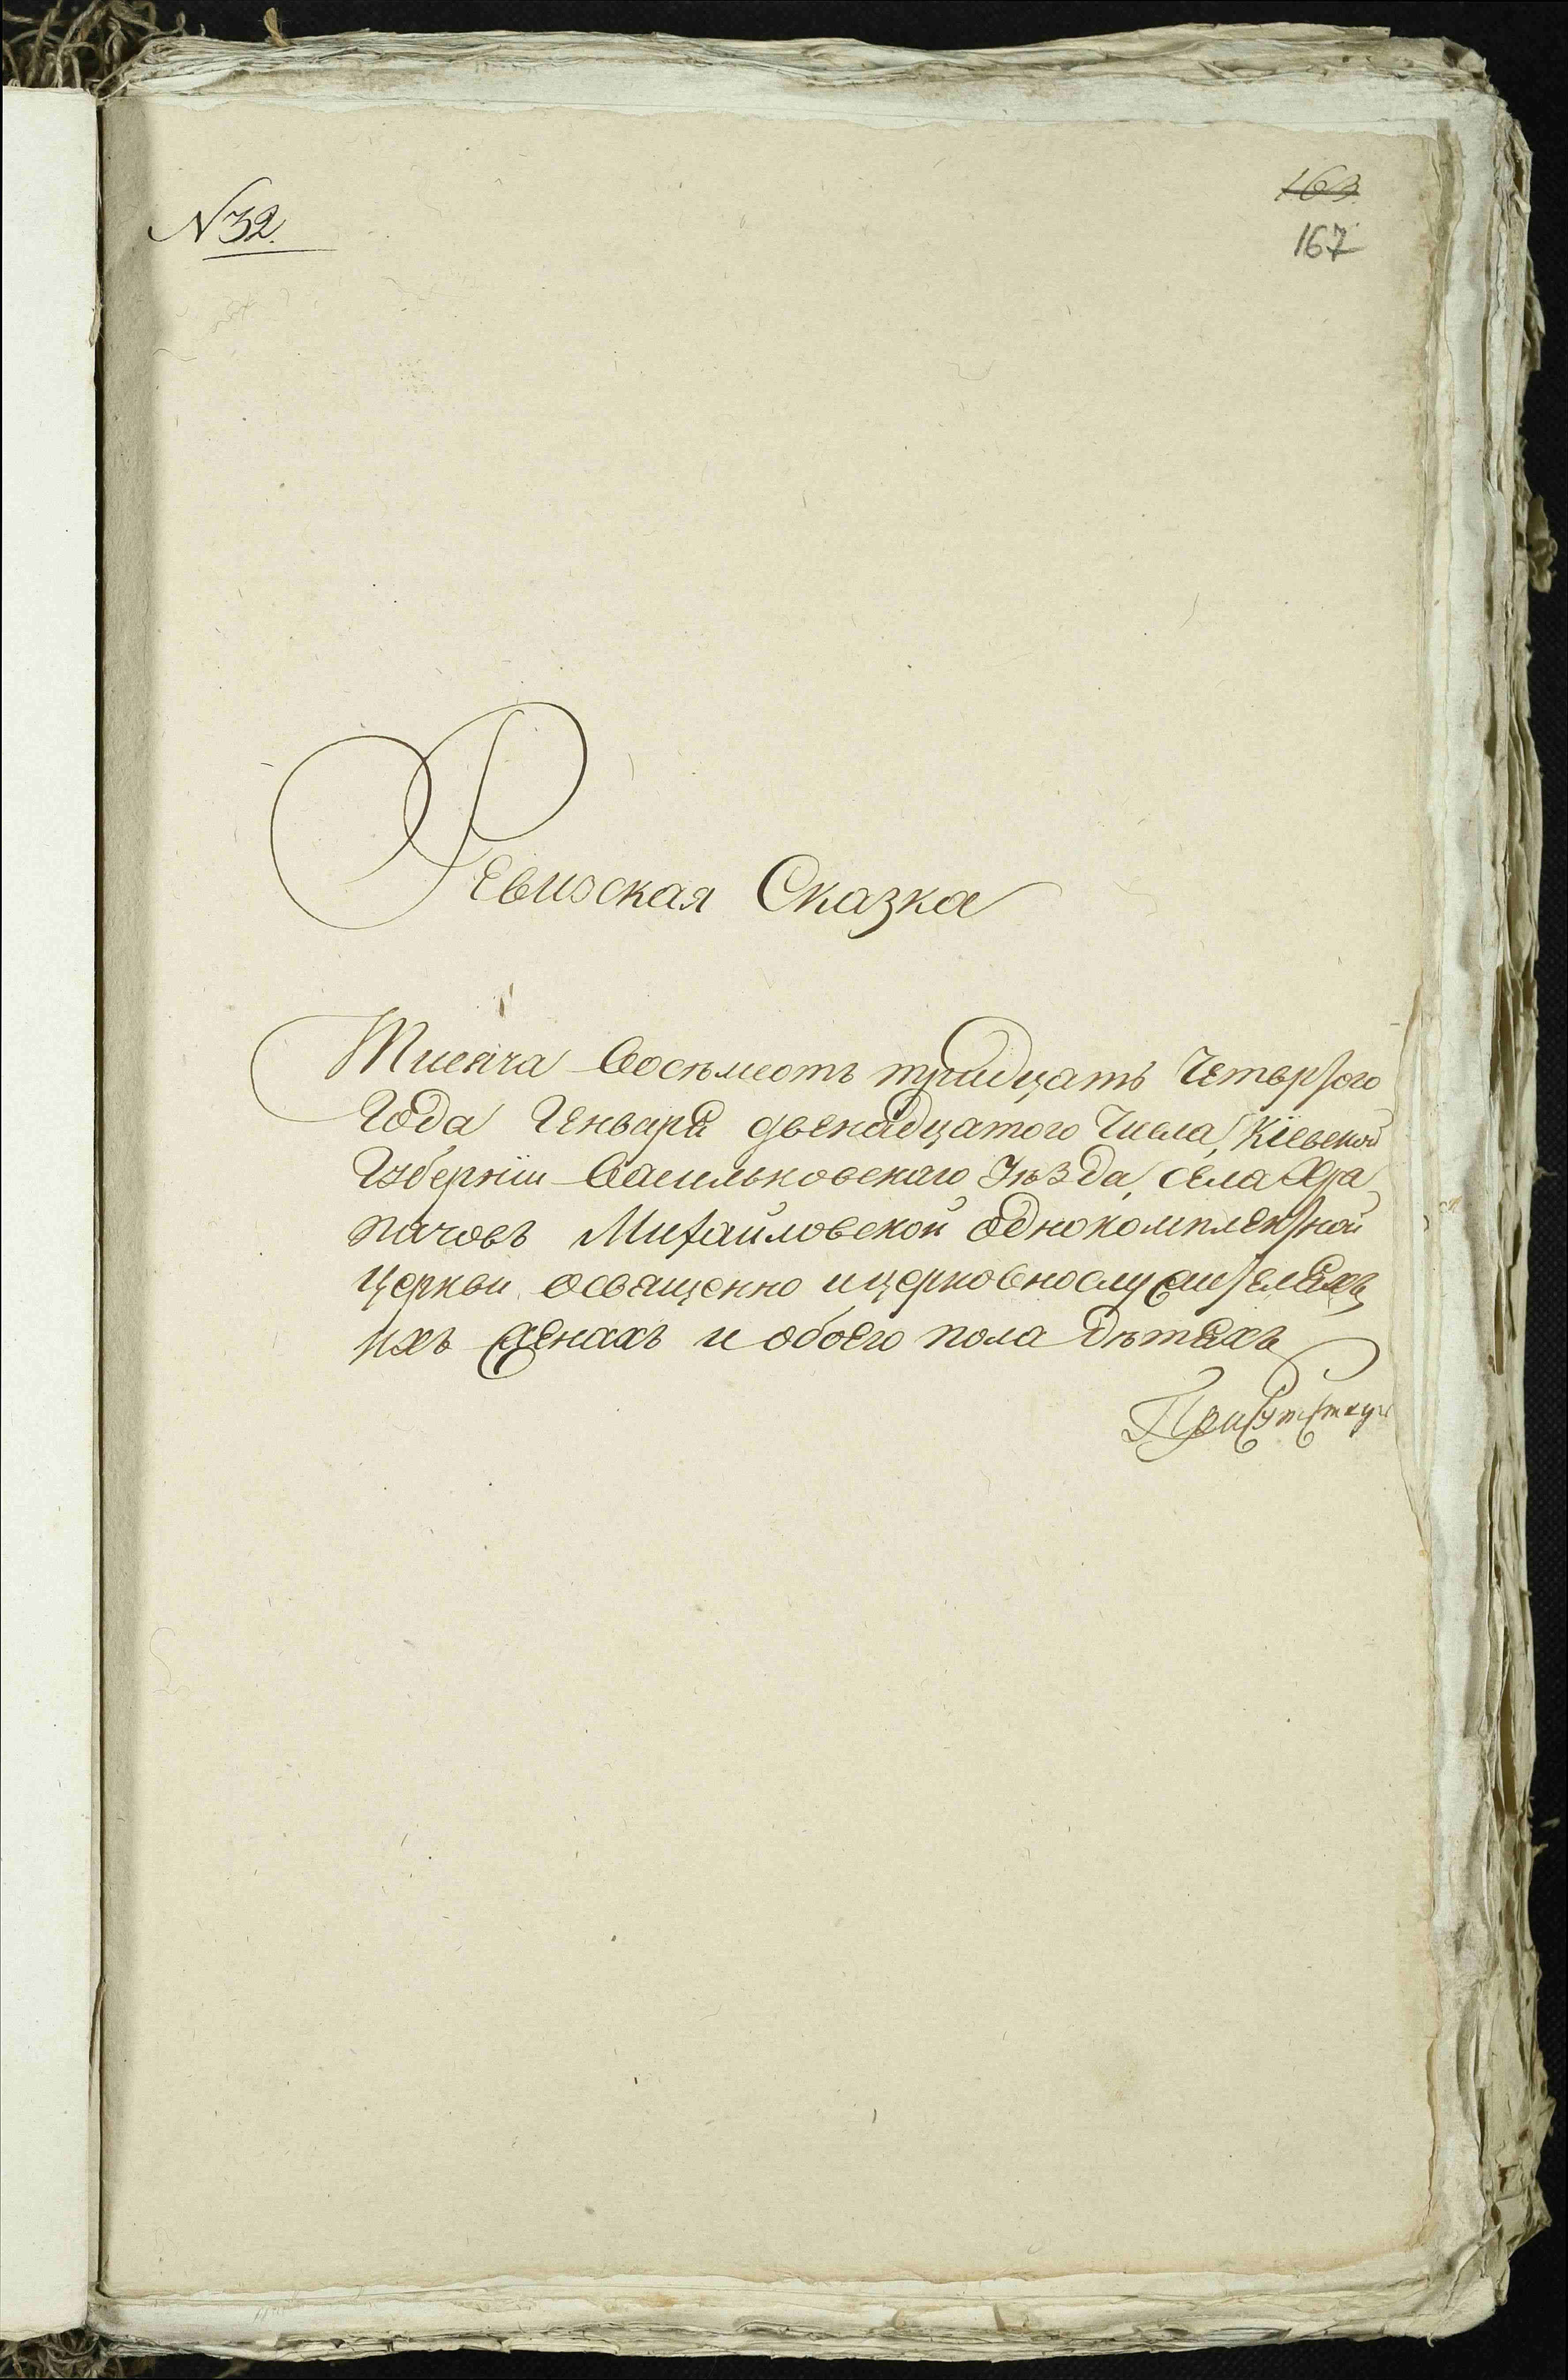 N 32.
163
167
Ревизская Сказка
Тисяча Восемсотъ тридцать Четвертого
Года Генваря двенадцатого Числа, Кіевской
Губерніи Васильковского Уѣзда, села Хра
пачовъ Михайловской однокомплектной
церкви освященно и церковнослужителяхъ
ихъ женахъ и обоего пола дѣтяхъ